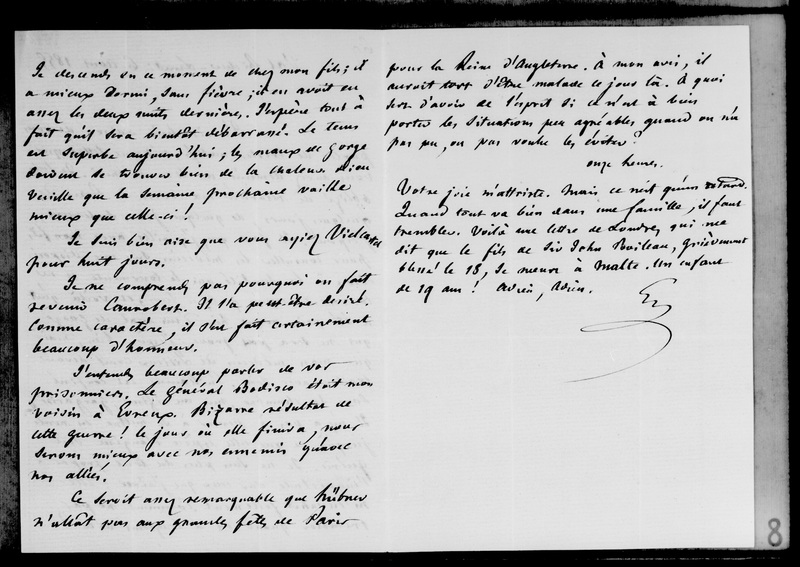 Je descends en ce moment de chez mon fils ; il
a mieux dormi, sans fièvre ; il en avoit eu
assez les deux nuits dernières. J'espère tout à
fait qu'il sera bientôt débarrassé. Le tems
est superbe aujourd'hui ; les maux de gorge
doivent se trouver bien de la chaleur. Dieu
veuille que la semaine prochaine vaille
mieux que celle-ci !
Je suis bien aise que vous ayiez Vielcastel
pour huit jours.
Je ne comprends pas pourquoi on fait
revenir Canrobert. Il l'a peut-être desiré.
Comme caractère, il s'est fait certainement
beaucoup d'honneur.
J'entends beaucoup parler de vos
prisonniers. Le général Bodisco était mon
voisin à Evreux. Bizarre résultat de
cette guerre ! le jour où elle finira, nous
serons mieux avec nos ennemis qu'avec
nos alliés.
Ce seroit assez remarquable que Hübner
n'allât pas aux grandes fêtes de Paris
pour la Reine d'Angleterre. À mon avis, il
auroit tort d'être malade ce jour là. À quoi
sert d'avoir de l'esprit si ce n'est à bien
porter les situations peu agréables quand on n'a
pas pu, ou pas voulu les éviter ?
onze heures.
Votre joie m'attriste. Mais ce n'est qu'un retard.
Quand tout va bien dans une famille, il faut
trembler. Voilà une lettre de Londres, qui me
dit que le fils de Sir John Boileau, grièvement
blessé le 18, se meurt à Malte. Un enfant
de 19 ans ! Adieu, Adieu.
8